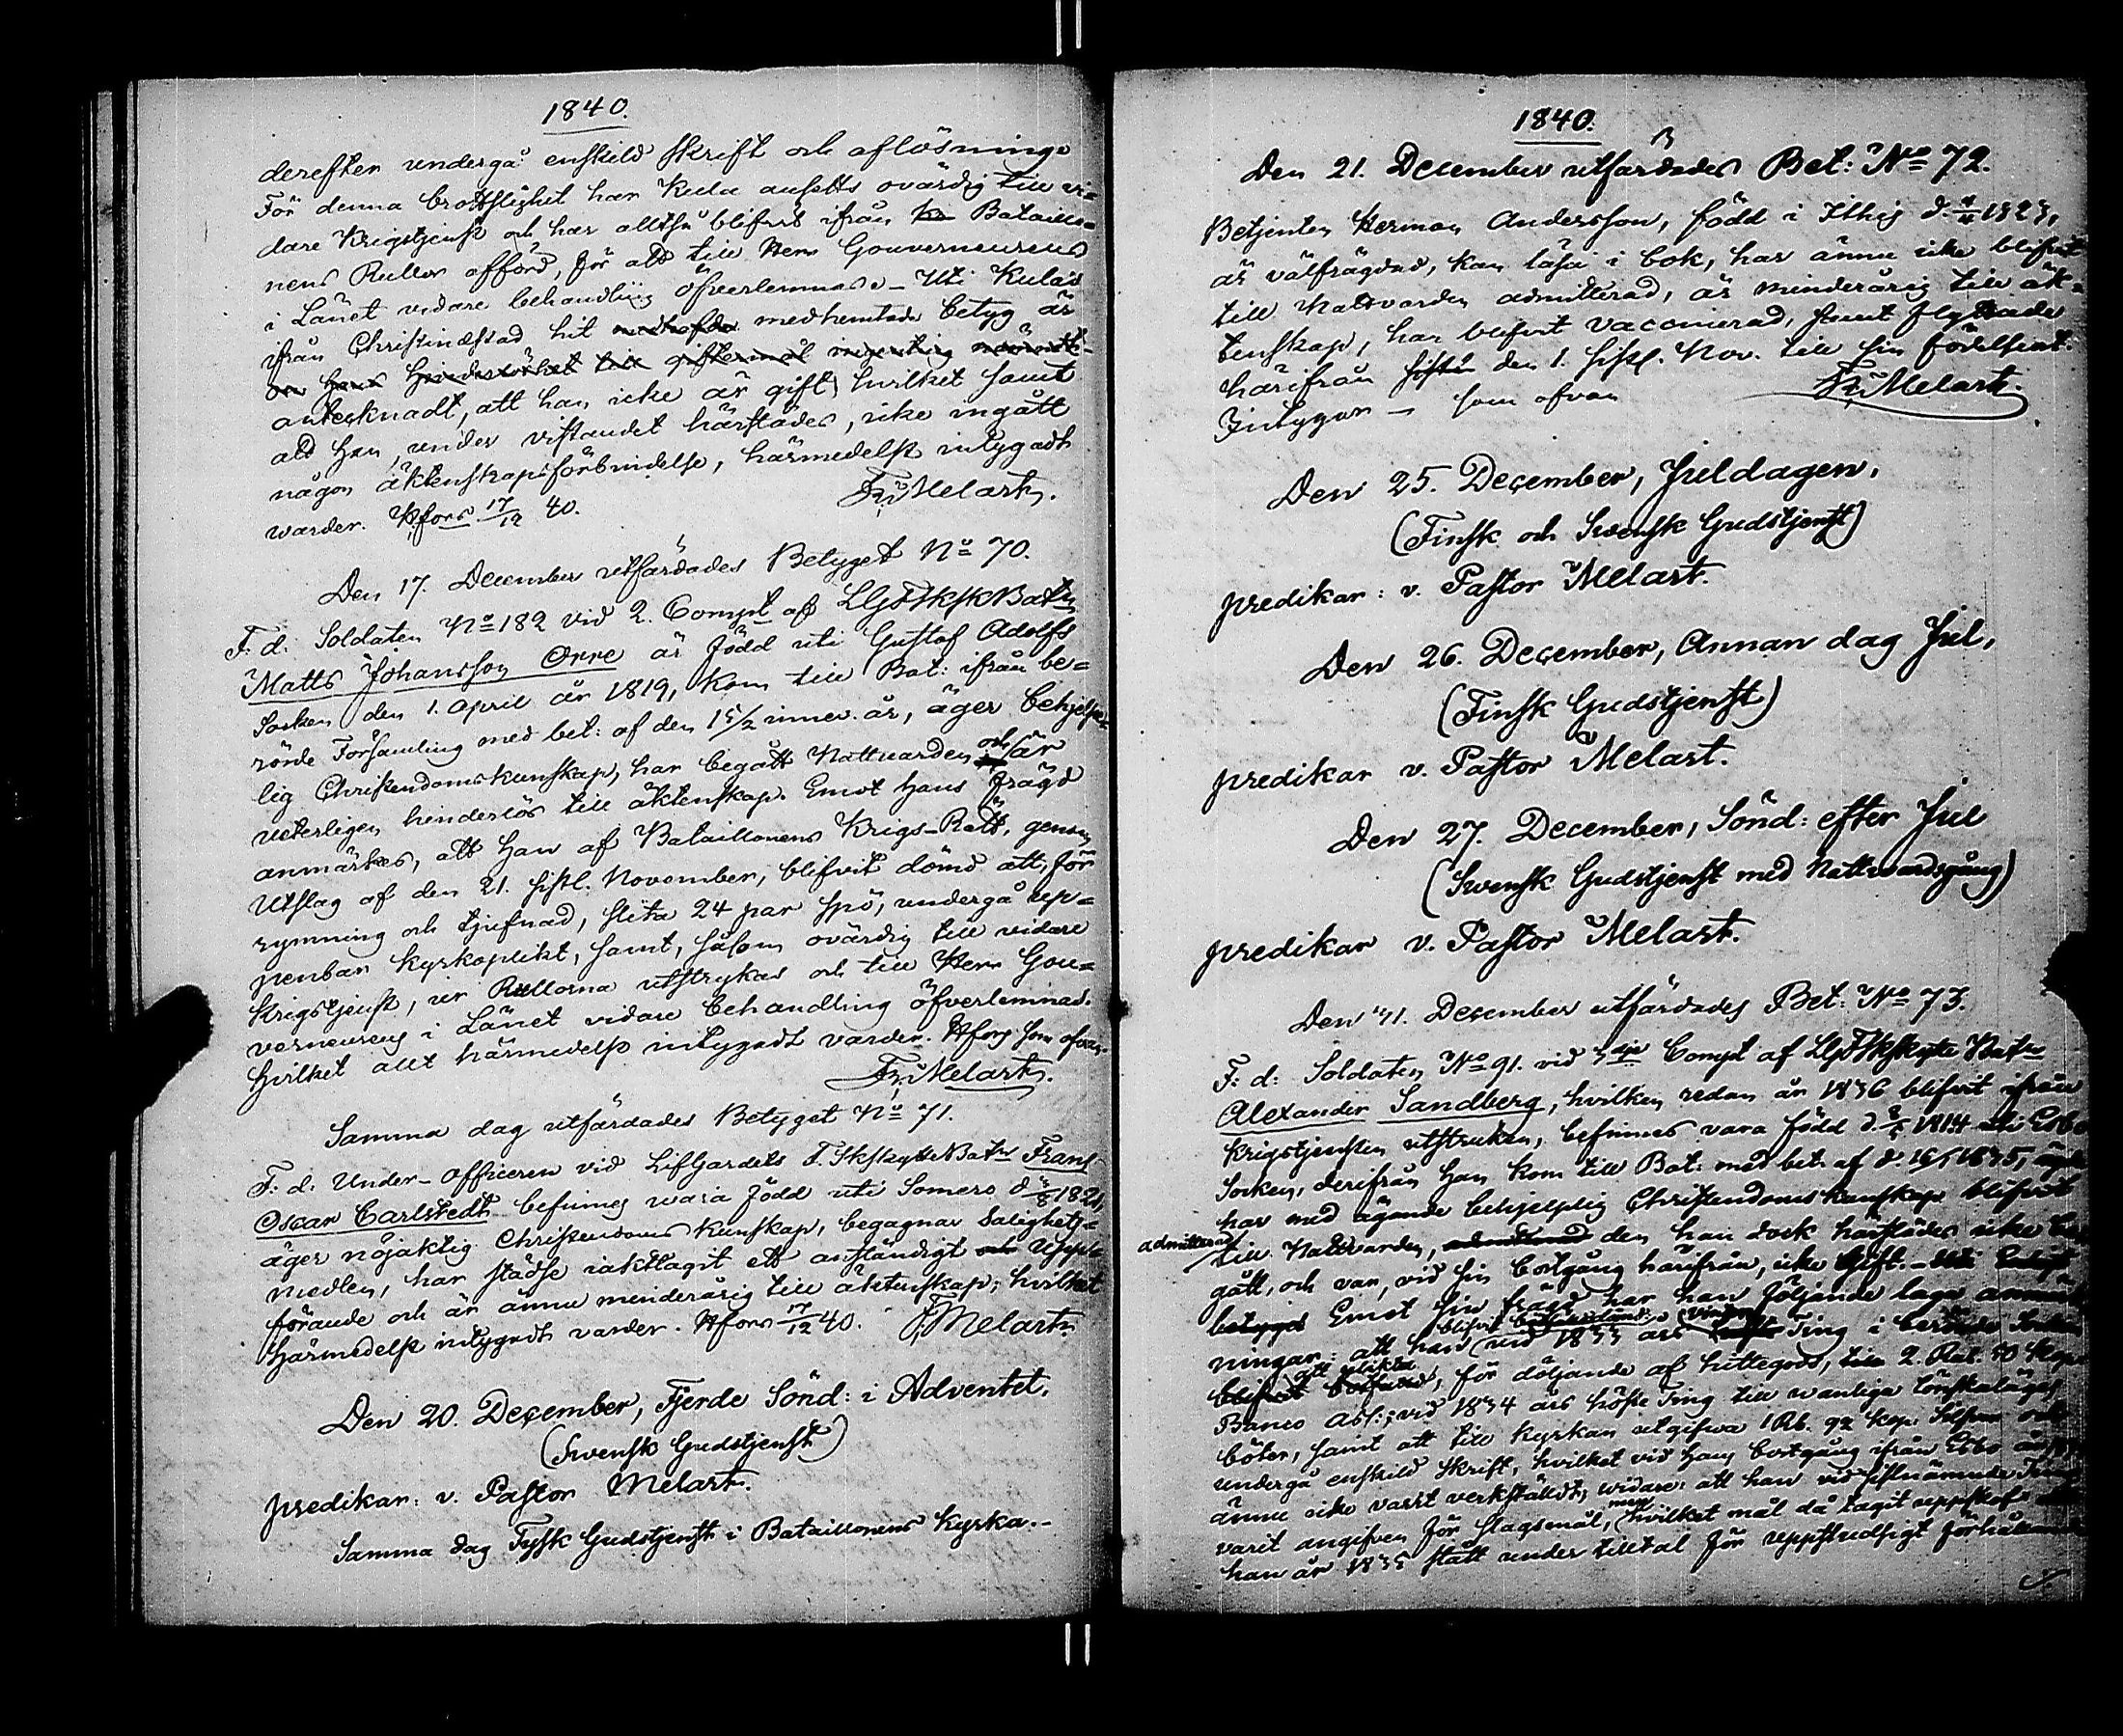 1840.
derefter undergå enskild skrift och aflösning.
För denna brottslighet har Kula ansetts ovärdig till vi=
dare Krigstjenst och har alltså blifvit ifrån Bataillo=
nens Rullor afförd, för att till Herr Gouverneurens
i Länet vidare behandling öfverlemnas. - Uti Kulas
ifrån Christinæstad hit medhemtade betyg är
hans hinderslöshet till giftermål ingenting
antecknadt, att han icke är gift, hvilket samt
att han, under vistandet härstädes, icke ingått
någon äktenskapsförbindelse, härmedelst intygadt
warder. Hfors 17/12 40. Fr: Melart.
Den 17. December utfärdades Betyget No 70.
F. d. Soldaten No 182 vid 2. Compt af LGFSkskBatn
Matts Johansson Orre är född uti Gustaf Adolfs
Socken den 1. April år 1819, kom till Bat: ifrån be=
rörde Församling med bet: af den 15/2 innev. år, äger behjelp=
lig Christendomskunskap, har begått Nattvarden och är
veterligen hinderlös till äktenskap. Emot hans frägd
anmärkes, att han af Bataillonens Krigs-Rätt, genom
Utslag af den 21. sistl. November, blifvit dömd att, för
rymning och tjufnad, slita 24 par spö, undergå up=
penbar Kyrkoplikt, samt, såsom ovärdig till vidare
Krigstjenst, ur Rullorna utstrykas och till Herr Gou=
verneurens i Länet vidare behandling öfverlemnas.
Hvilket allt härmedelst intygadt varder. Hfors som ofvan.
Fr: Melart.
Samma dag utfärdades Betyget No 71.
F. d. Under-officeren vid LifGardets F. SkskytteBatn Frans
Oscar Carlstedt befinnes wara född uti Somero d 1821,
äger nöjaktig Christendoms kunskap, begagnar Salighets=
medlen, har städse iakttagit ett anständigt och Upp=
förande och är ännu minderårig till äktenskap; hvilket
härmedelst intygadt varder. Hfors 17/12 40. F. Melart.
Den 20. December, Fjerde Sönd: i Adventet,
(Swensk Gudstjenst)
predikar: v. Pastor Melart.
Samma dag Tysk Gudstjenst i Bataillonens Kyrka. -
1840.
Den 21. December utfärdades Bet: No 72.
Betjenten Herman Andersson, född i Ithis d. 1823,
är välfrägdad, kan läsa i bok, har ännu icke blifvit
till Nattvarden admitterad, är minderårig till äk=
tenskap, har blifvit vaccinerad, samt flyttade
härifrån sistl. den 1. sistl. Nov. till sin födelseort.
Intygar - som ofvan Fr: Melart.
Den 25. December, Juldagen,
(Finsk och Swensk Gudstjenst)
predikar: v. Pastor Melart.
Den 26. December, Annan dag Jul,
(Finsk Gudstjenst)
predikar v. Pastor Melart.
Den 27. December, Sönd: efter Jul
(Swensk Gudstjenst med Nattvardsgång)
predikar v. Pastor Melart.
Den 31. December utfärdades Bet: No 73.
F. d. Soldaten No 91. vid 3dje Compt af LGFSkskytte Batn
Alexander Sandberg, hvilken redan år 1836 blifvit ifrån
krigstjensten utstruken, befinnes vara född d. 1814 uti Esbo
Socken, derifrån han kom till Bat: med bet. af d. 1835,
har med ägande behjelplig Christendomskunskap blifvit
admitterad
till Nattvarden, den han dock härstädes icke be=
gått, och var, vid sin bortgång härifrån, icke gift. -
betyget Emot sin frägd har han följande laga anmärk=
blifvit
ningar: att han vid 1833 års Ting i berörde Socken
att plikta
blifvit, för döljande af hittegods, till 2. Rub. 50 kop.
Banco Ass:; vid 1834 års höste Ting till wanliga lönskaläges
böter, samt att till Kyrkan utgifwa 1 Rb. 92 kop. Silfver och
undergå enskild skrift, hvilket vid hans bortgång ifrån Esbo
ännu icke varit verkställdt; widare: att han vid sistnämnde Ting
varit angifven för slagsmål, men hvilket mål då tagit uppskof
han år 1835 stått under tilltal för uppstudsigt förhållande